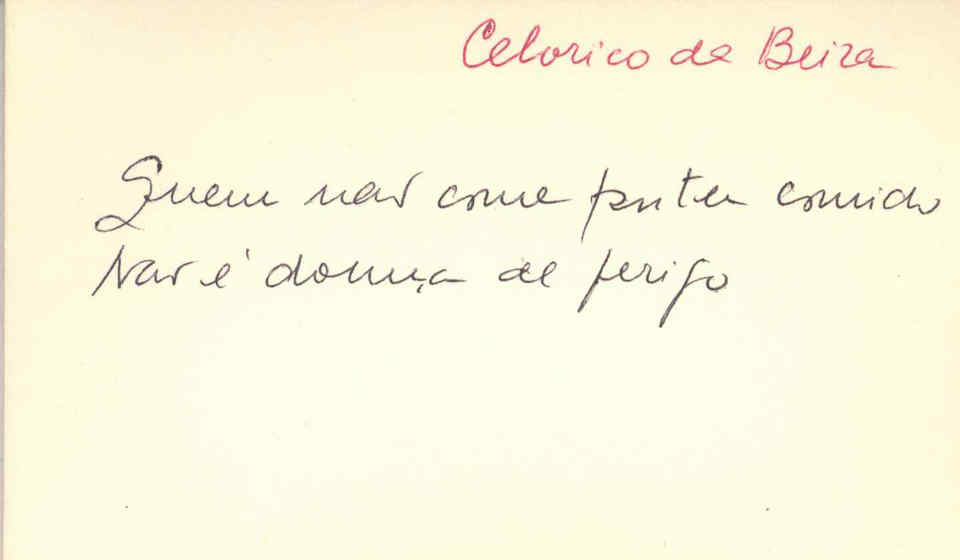 Celorico da Beira
Quem não come por ter comido
Não é doença de perigo